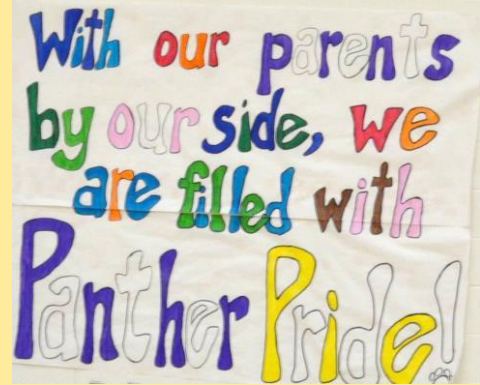 With our parents
by our side, we
are filled with
Panther Pride!